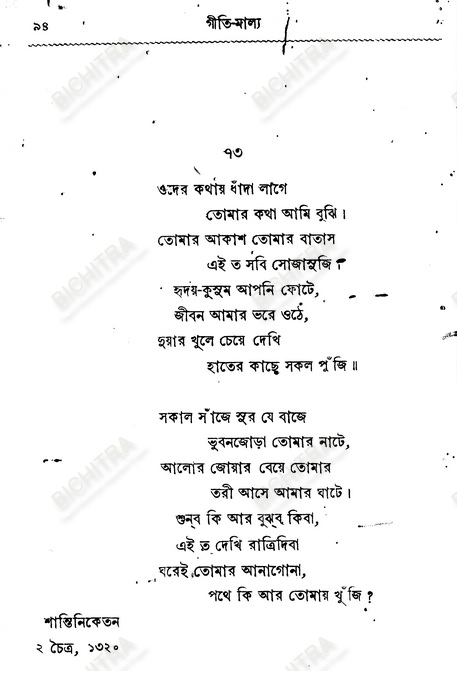 ৯৪
গীতি-মাল্য
৭৩
ওদের কথায় ধাঁদা লাগে
তোমার কথা আমি বুঝি।
তোমার আকাশ তোমার বাতাস
এই ত সবি সোজাসুজি।
হৃদয়-কুসুম আপনি ফোটে,
জীবন আমার ভরে ওঠে,
দুয়ার খুলে চেয়ে দেখি
হাতের কাছে সকল পুঁজি॥
সকাল সাঁজে সুর যে বাজে
ভুবনজোড়া তোমার নাটে,
আলোর জোয়ার বেয়ে তোমার
তরী আসে আমার ঘাটে।
শুন্‌ব কি আর বুঝ্‌ব কিবা,
এই ত দেখি রাত্রিদিবা
ঘরেই তোমার আনাগোনা,
পথে কি আর তোমায় খুঁজি?
শান্তিনিকেতন
২ চৈত্র, ১৩২০
BICHITRA
BICHITRA
BICHITRA
BICHITRA
BICHITRA
BICHITRA
BICHITRA
BICHITRA